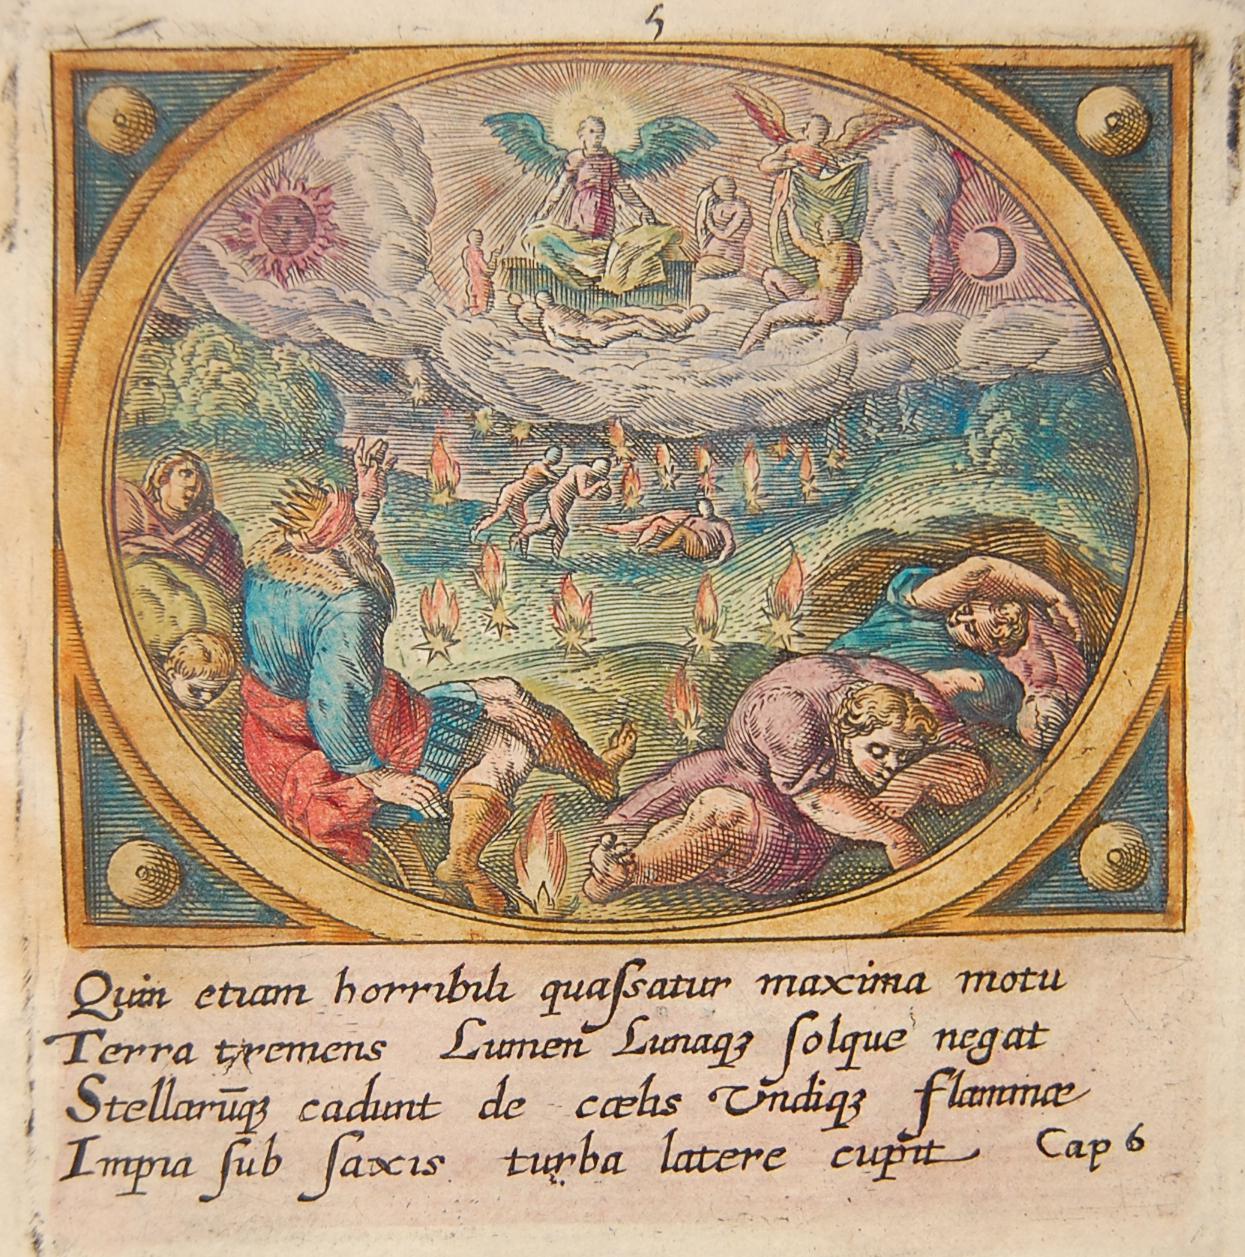 5
Quin etiam horribili quaſsatur maxima motu
Terra tremens Lumen Lunaqꝫ ſolque negat
Stellarūqꝫ cadunt de cælis Undiqꝫ flammæ
Impia ſub ſaxis turba latere cupit Cap 6